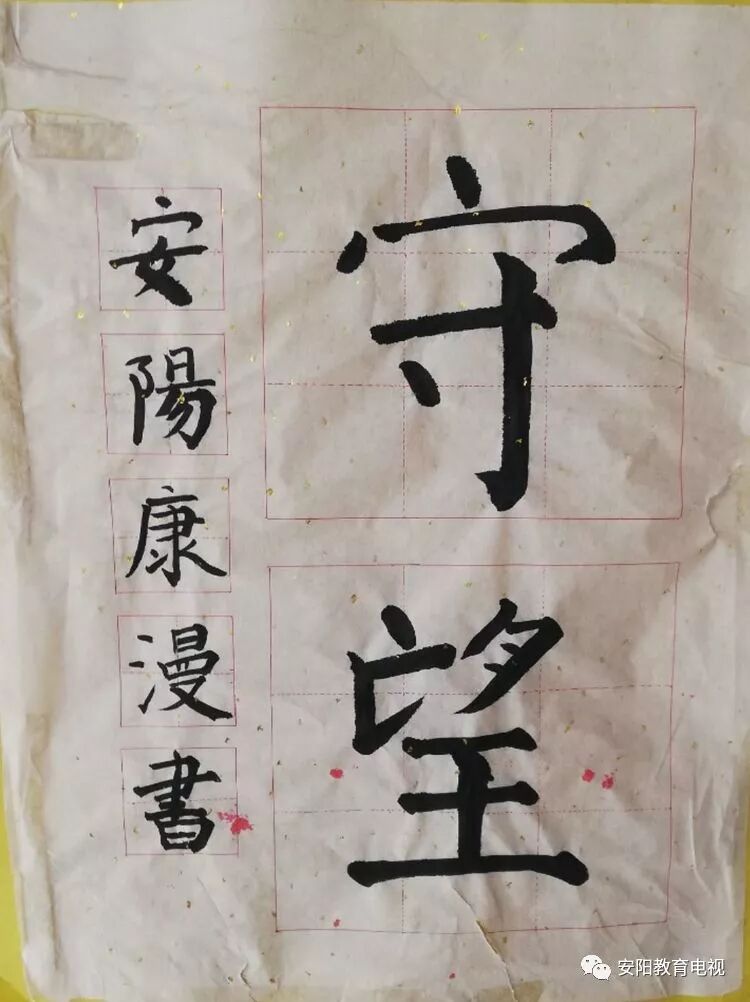 守望
安陽康漫書
安阳教育电视